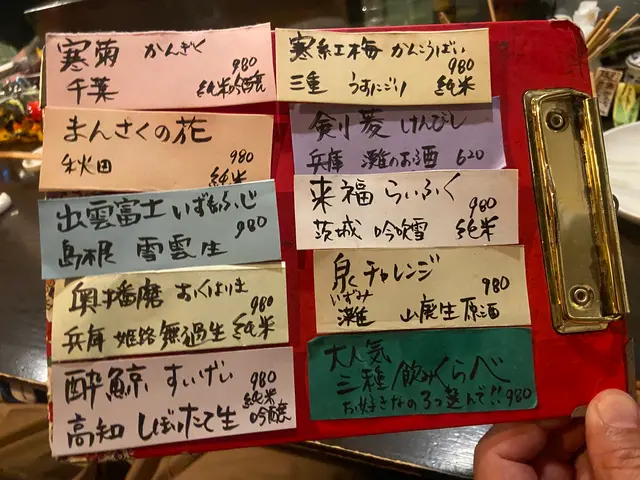 寒菊 かんぎく
980
千葉 純米吟醸
まんさくの花
980
秋田 純米
出雲富士 いずもふじ
980
島根 雪雲 生
奥播磨 おくはりま
980
兵庫 姫路 無過生 純米
酔鯨 すいげい
980
純米
高知 しぼりたて生 吟醸
寒紅梅 かんこうばい
980
三重 うすにごり 純米
剣菱 けんびし
兵庫 灘のお酒 620
来福 らいふく
980
茨城 吟吹雪 純米
泉チャレンジ
いずみ 980
灘 山廃生原酒
大人気
三種飲みくらべ
お好きなの3つ選んで!! 980